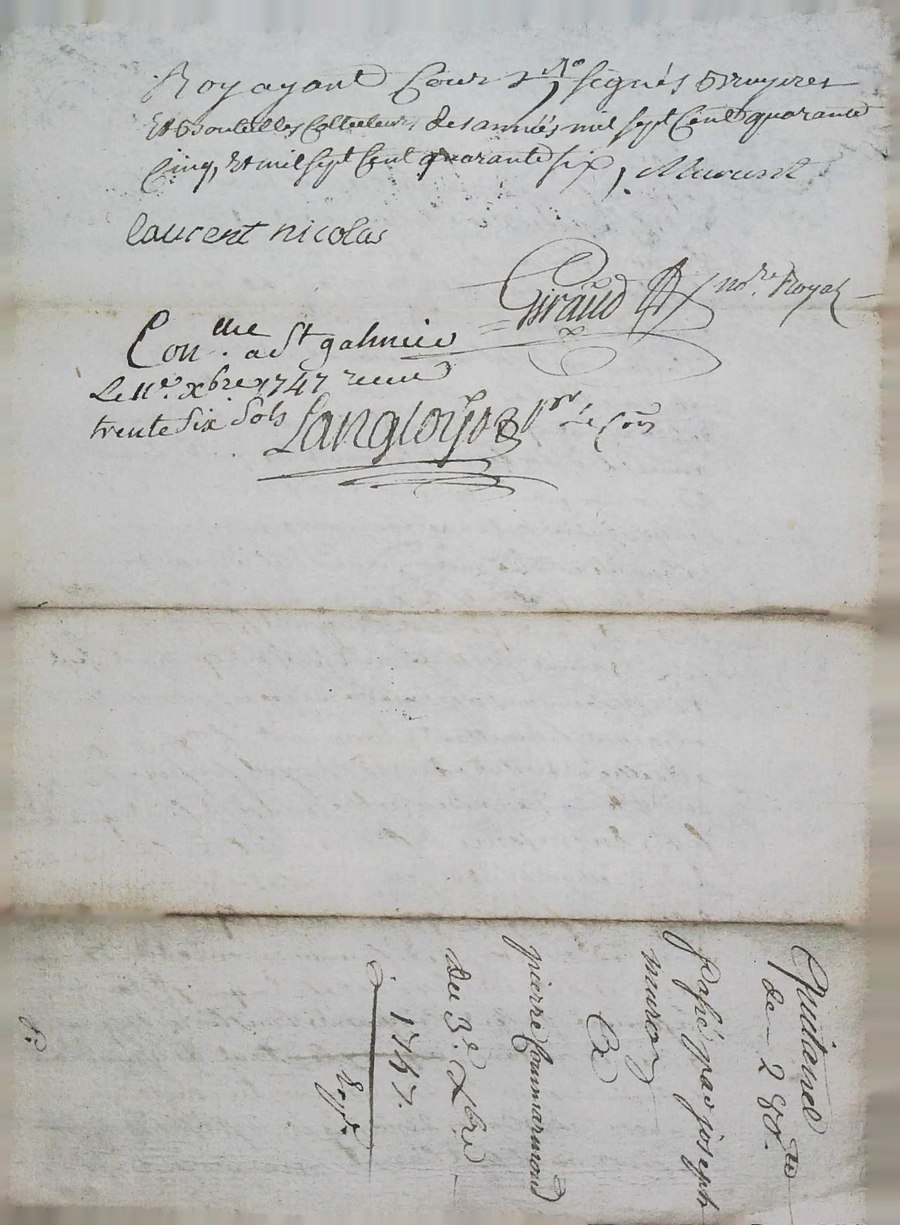 Royayant Cour signés Bruyeres
Et Bouteilles Collecteurs des années mil sept Cent quarante
Cinq, Et mil sept Cent quarante six,
laurent nicolas
Giraud no.re Royal
Con.lle a St galmier
Le 11e xbre 1747 receu
trente six sols Langloys
Quitance
de - 280 tt
passé par joseph
muron
a
pierre
du 3e Xbre
1747.